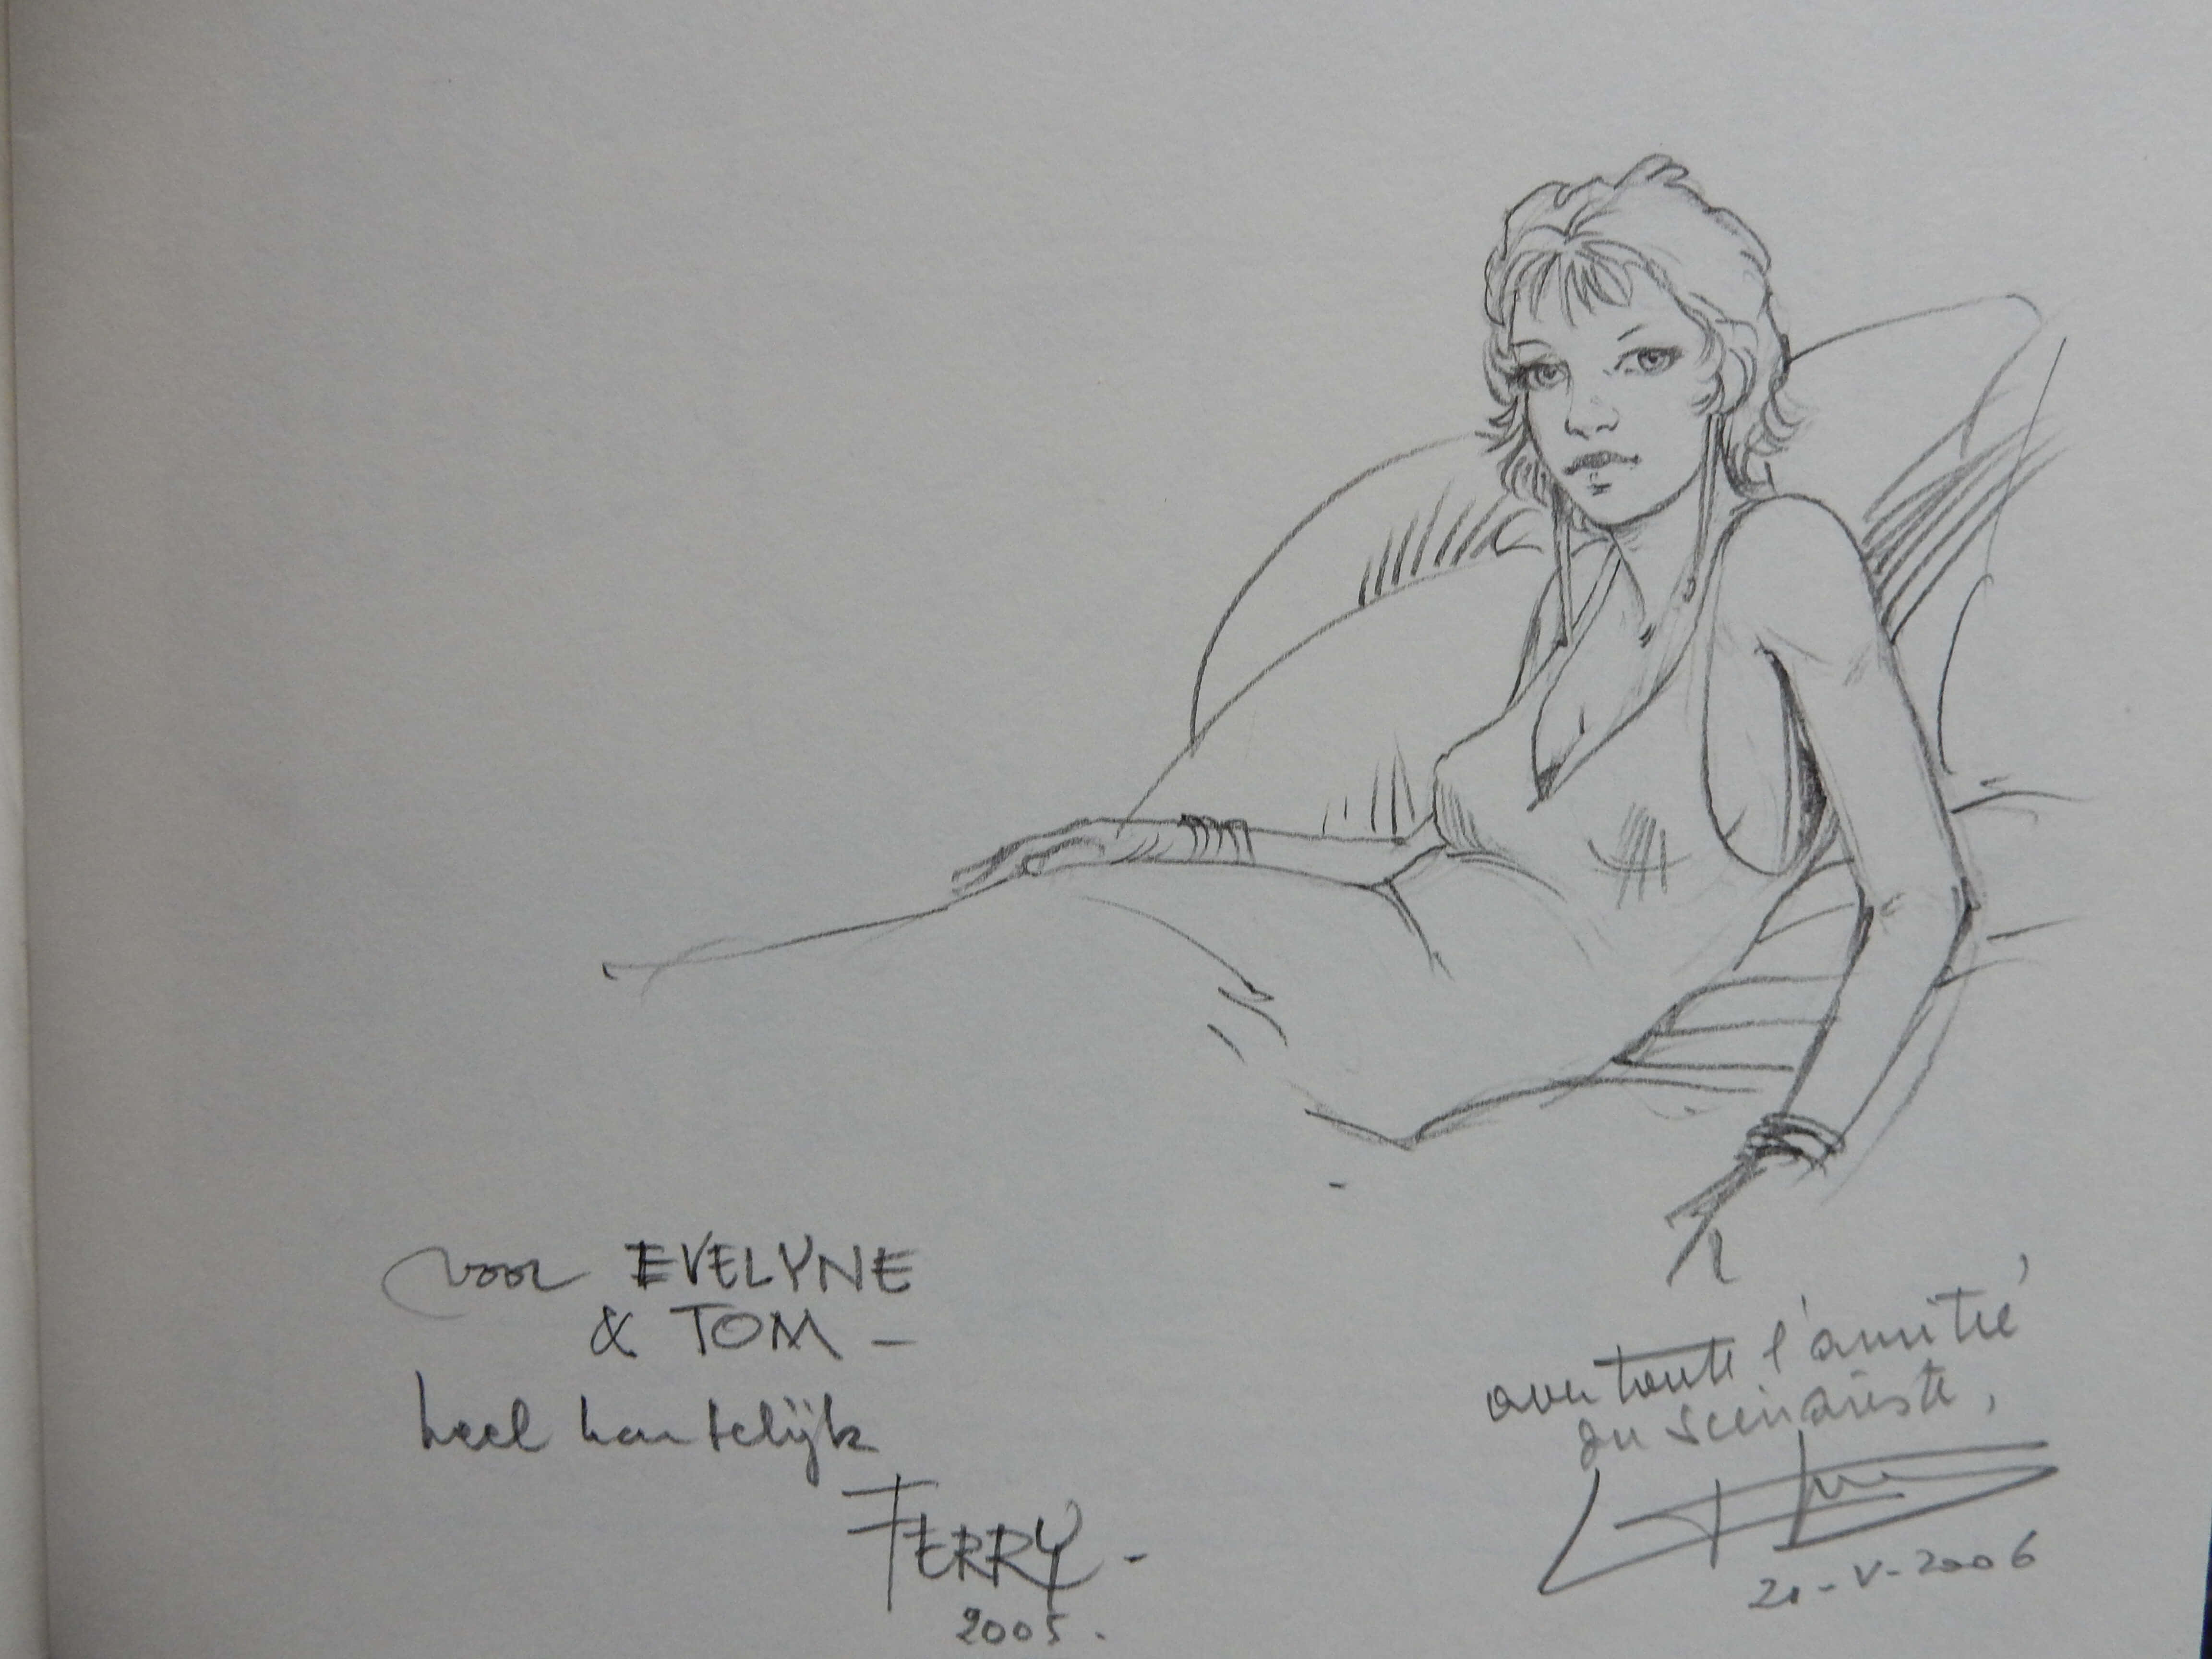 voor EVELYNE
& TOM —
heel hartelijk
FERRY -
2005.
avec toute l'amitié
du scénariste,
21-V-2006